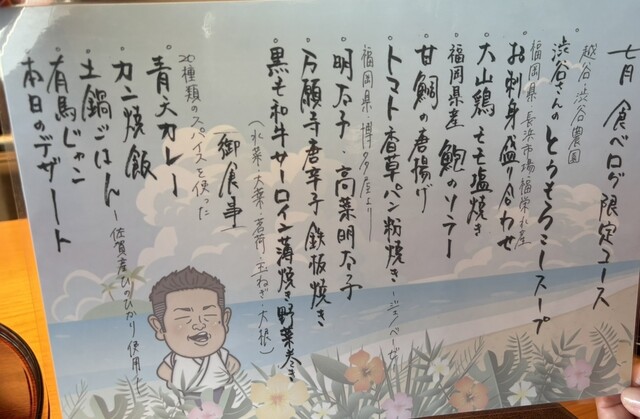 七月 食べログ限定コース
越谷 渋谷農園
渋谷さんのとうもろこしスープ
福岡県 長浜市場福栄水産
お刺身盛り合わせ
大山鶏 もも塩焼き
福岡県産 鮑のソテー
甘鯛の唐揚げ
トマト香草パン粉焼き-ジェノベーゼ
福岡県・博多屋より
明太子・高菜明太子
万願寺唐辛子 鉄板焼き
黒毛和牛サーロイン薄焼き野菜巻き
(水菜・大葉・茗荷・玉ねぎ・大根)
御食事
20種類のスパイスを使った
青天カレー
カニ焼飯
土鍋ごはん-佐賀産ひのひかり使用
有馬じゃん
本日のデザート